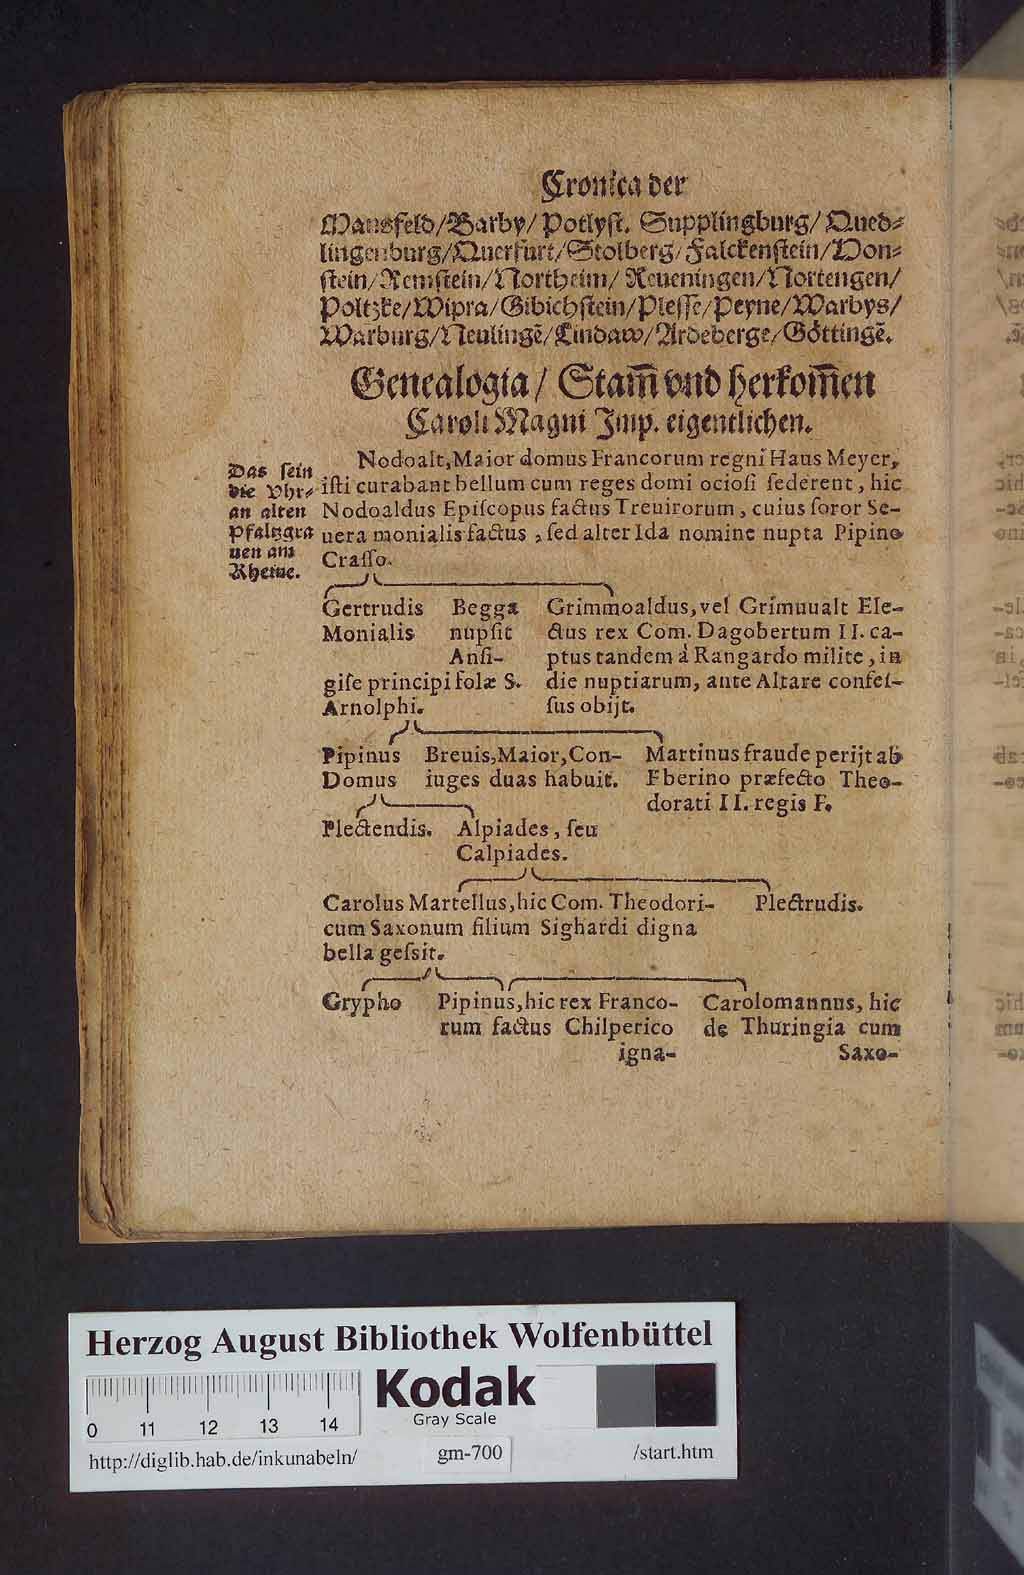 Cronica der
Mansfeld/Barby/Potlyst. Supplingburg/Qued⸗
lingenburg/Querfurt/Stolberg/Falckenstein/Hon⸗
stein/Remstein/Northeim/Reueningen/Nortengen/
Poltzke/Wipra/Gibichstein/Plesse/Peyne/Warbys/
Warburg/Neulingē/Lindaw/Ardeberge/Göttingē.
Genealogia/ Stam̄ vnd herkom̄en
Caroli Magni Imp. eigentlichen.
Das sein
die Vhr⸗
an alten
Pfaltzgra
uen am
Rheine.
Nodoalt, Maior domus Francorum regni Haus Meyer,
iſti curabant bellum cum reges domi ocioſi ſederent, hic
Nodoaldus Epiſcopus factus Treuirorum, cuius ſoror Se-
uera monialis factus, ſed alter Ida nomine nupta Pipino
Craſſo.
Gertrudis Begga Grimmoaldus, vel Grimuualt Ele-
Monialis nupſit ctus rex Com. Dagobertum II. ca-
Anſi- ptus tandem à Rangardo milite, in
giſe principi ſolæ S. die nuptiarum, ante Altare confeſ-
Arnolphi. ſus obijt.
Pipinus Breuis, Maior, Con- Martinus fraude perijt ab
Domus iuges duas habuit. Eberino præfecto Theo-
dorati II. regis F.
Plectendis. Alpiades, ſeu
Calpiades.
Carolus Martellus, hic Com. Theodori- Plectrudis.
cum Saxonum filium Sighardi digna
bella geſsit.
Grypho Pipinus, hic rex Franco- Carolomannus, hic
rum factus Chilperico de Thuringia cum
igna- Saxo-
Herzog August Bibliothek Wolfenbüttel
Kodak
Gray Scale
0 11 12 13 14
http://diglib.hab.de/inkunabeln/ gm-700 /start.htm